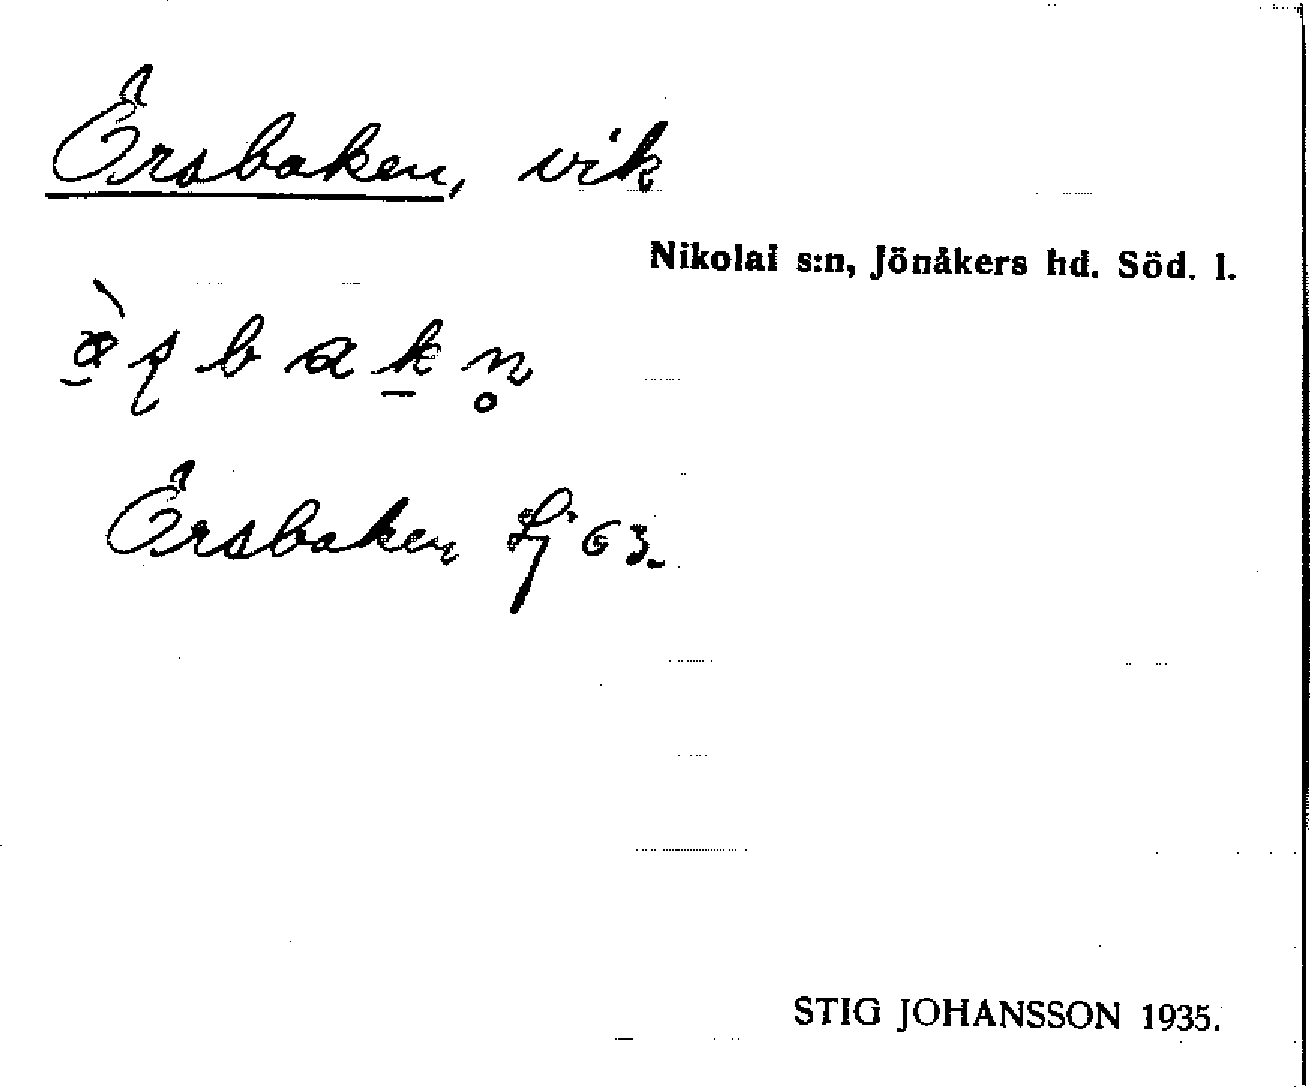 Örsbaken, vik
Nikolai s:n, Jönåkers hd. Söd. l.
Örsbaken Lj 63.
STIG JOHANSSON 1935.